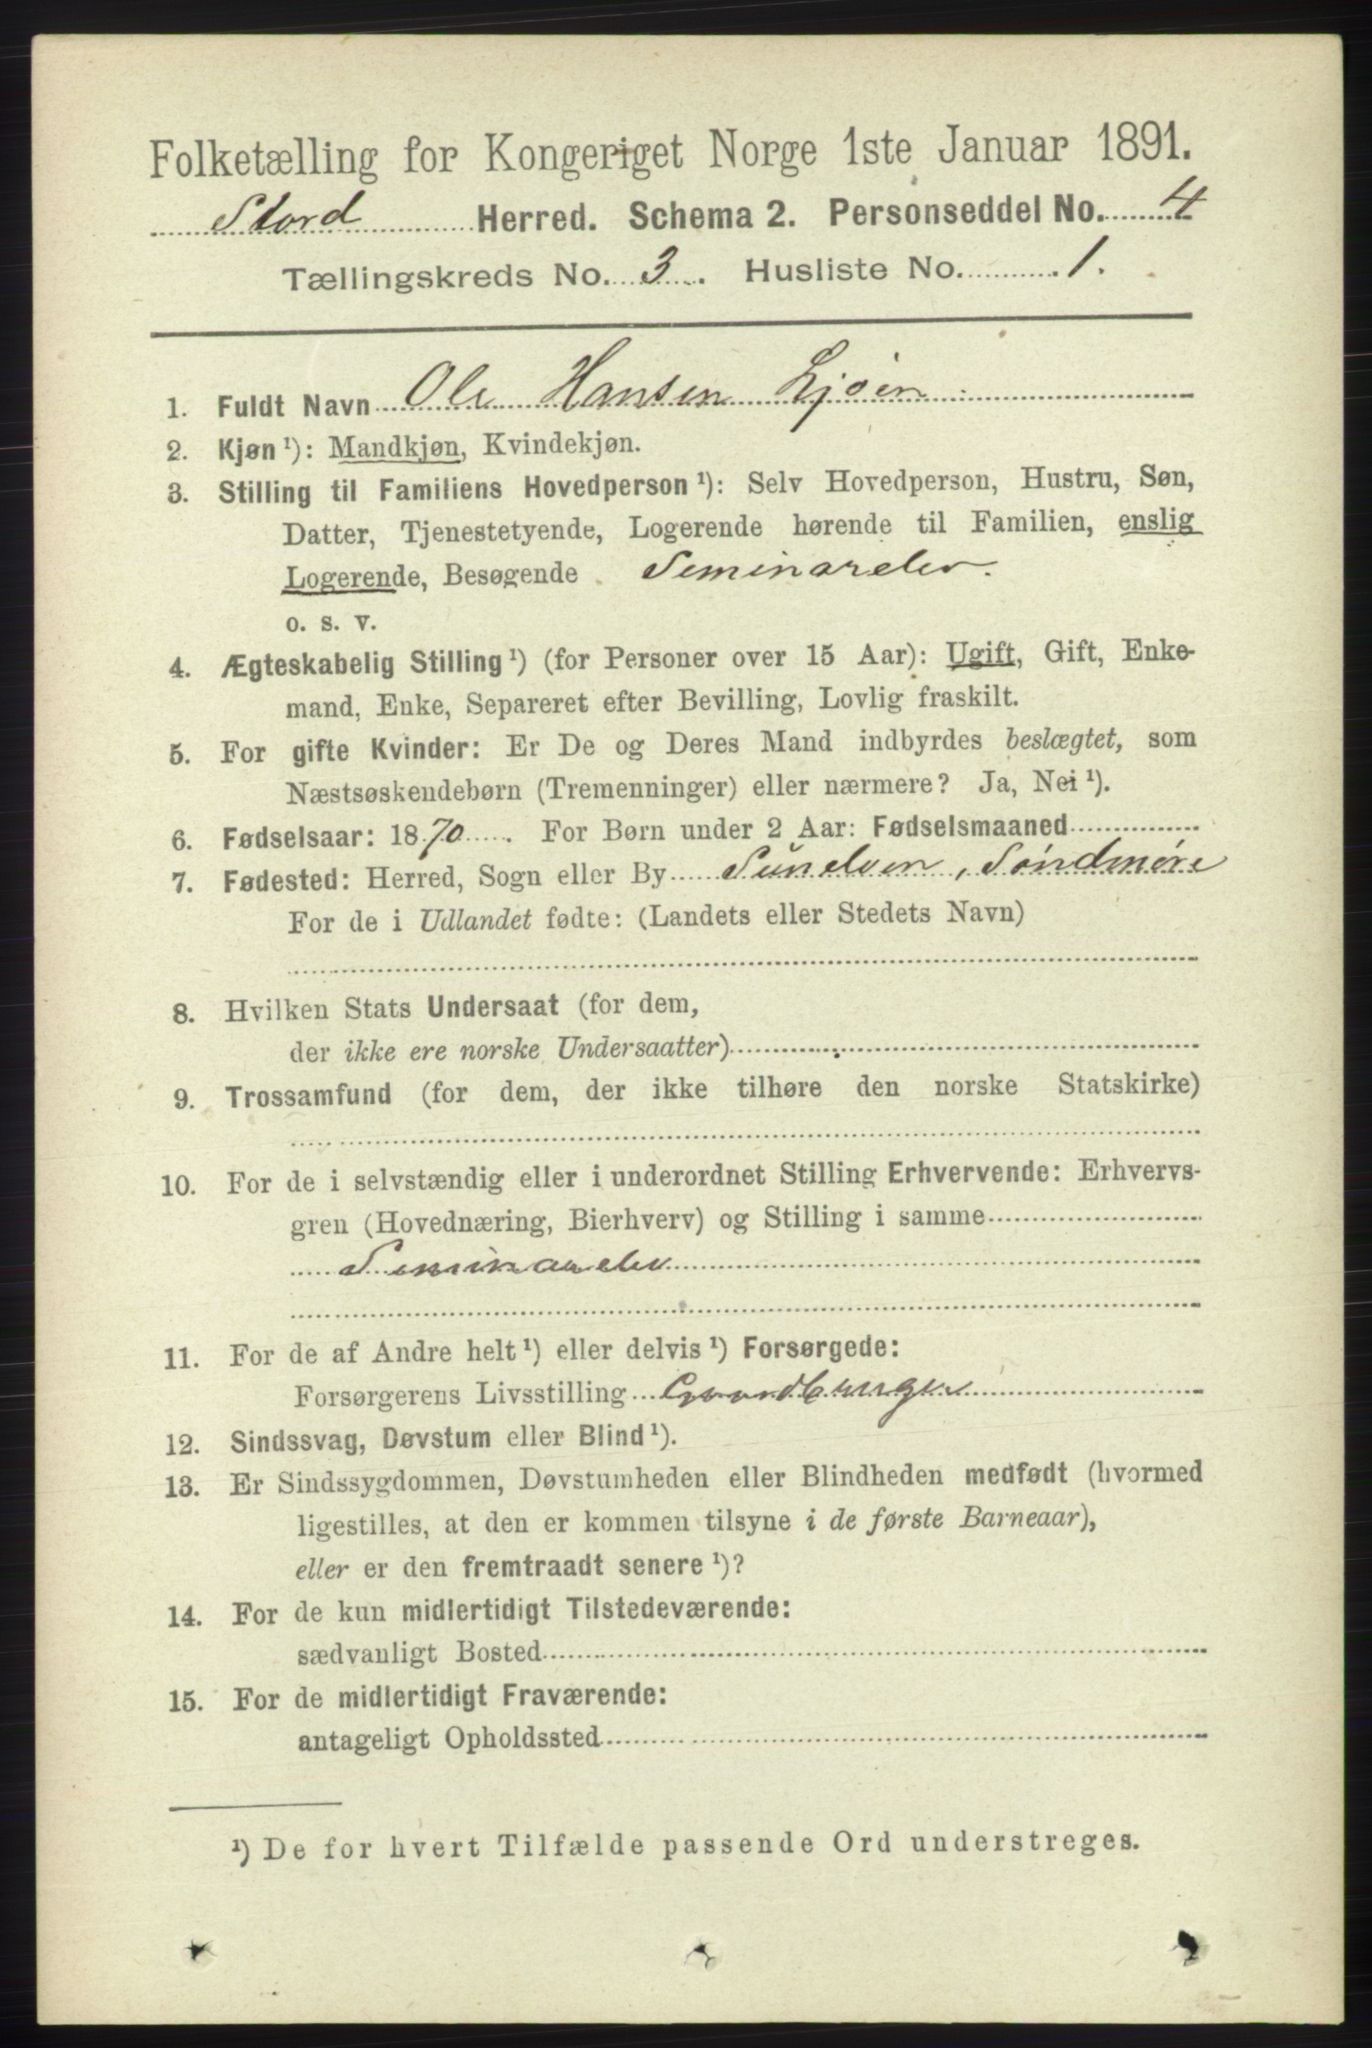 Folketælling for Kongeriget Norge 1ste Januar 1891.
Stord Herred. Schema 2. Personseddel No. 4
Tællingskreds No. 3. Husliste No. 1.
1. Fuldt Navn Ole Hansen Ljøen
2. Kjøn ¹): Mandkjøn, Kvindekjøn.
3. Stilling til Familiens Hovedperson ¹): Selv Hovedperson, Hustru, Søn,
Datter, Tjenestetyende, Logerende hørende til Familien, enslig
Logerende, Besøgende Seminarelev.
o. s. v.
4. Ægteskabelig Stilling ¹) (for Personer over 15 Aar): Ugift, Gift, Enke-
mand, Enke, Separeret efter Bevilling, Lovlig fraskilt.
5. For gifte Kvinder: Er De og Deres Mand indbyrdes beslægtet, som
Næstsøskendebørn (Tremenninger) eller nærmere? Ja, Nei ¹).
6. Fødselsaar: 1870. For Børn under 2 Aar: Fødselsmaaned
7. Fødested: Herred, Sogn eller By Sunelven, Søndmøre
For de i Udlandet fødte: (Landets eller Stedets Navn)
8. Hvilken Stats Undersaat (for dem,
der ikke ere norske Undersaatter)
9. Trossamfund (for dem, der ikke tilhøre den norske Statskirke)
10. For de i selvstændig eller i underordnet Stilling Erhvervende: Erhvervs-
gren (Hovednæring, Bierhverv) og Stilling i samme
Seminarelev
11. For de af Andre helt ¹) eller delvis ¹) Forsørgede:
Forsørgerens Livsstilling Gaardbruger
12. Sindssvag, Døvstum eller Blind ¹).
13. Er Sindssygdommen, Døvstumheden eller Blindheden medfødt (hvormed
ligestilles, at den er kommen tilsyne i de første Barneaar),
eller er den fremtraadt senere ¹)?
14. For de kun midlertidigt Tilstedeværende:
sædvanligt Bosted
15. For de midlertidigt Fraværende:
antageligt Opholdssted
¹) De for hvert Tilfælde passende Ord understreges.